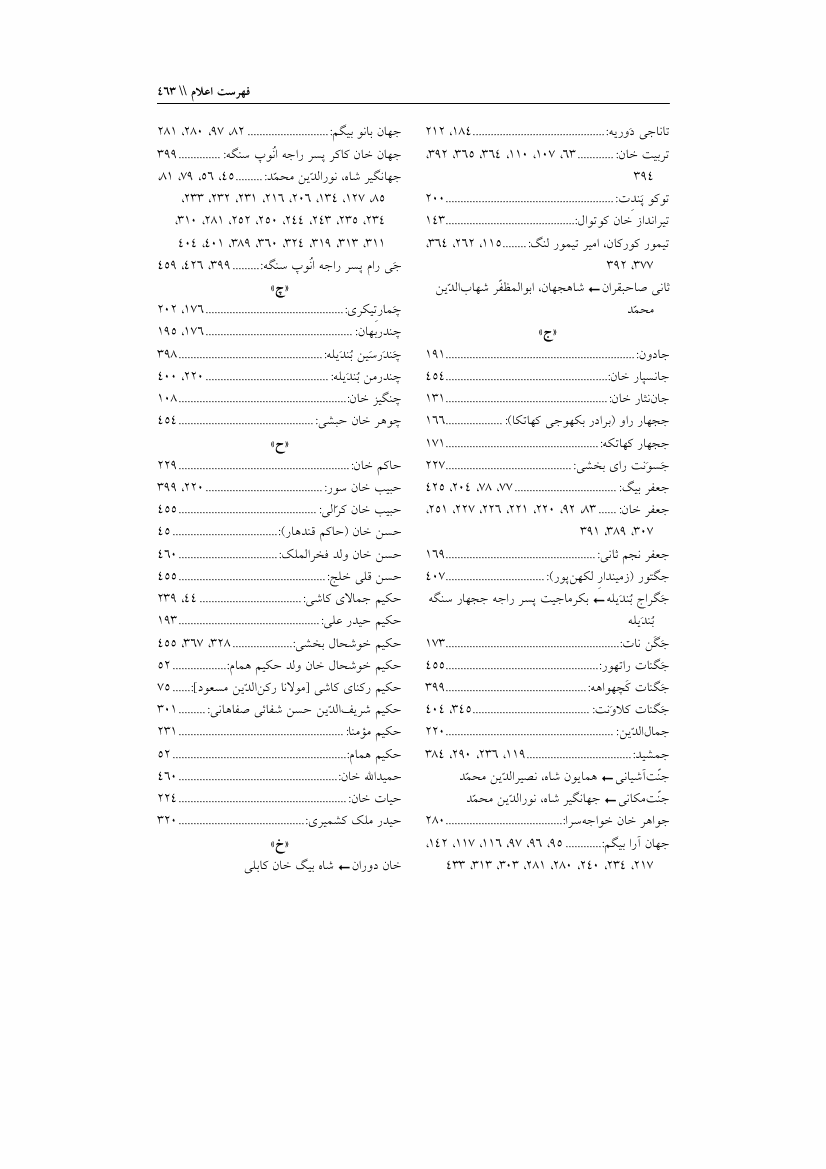 فهرست اعلام \\ ٤٦٣
تاناجی دَوریه:............................................١٨٤، ٢١٢
تربیت خان: ............ ٦٣، ١٠٧، ١١٠، ٣٦٤، ٣٦٥، ٣٩٢،
٣٩٤
توکو پَندِت:........................................................٢٠٠
تیرانداز خان کوتوال:...........................................١٤٣
تیمور کورکان، امیر تیمور لنگ:........١١٥، ٢٦٢، ٣٦٤،
٣٧٧، ٣٩٢
ثانی صاحبقران ← شاهجهان، ابوالمظفّر شهاب‌الدّین
محمّد
«ج»
جادون: ...............................................................١٩١
جانسپار خان:......................................................٤٥٤
جان‌نثار خان: ......................................................١٣١
ججهار راو (برادر بکهوجی کهاتکا): ...................١٦٦
ججهار کهاتکه: ...................................................١٧١
جَسوَنت رای بخشی: ..........................................٢٢٧
جعفر بیگ: .................................. ٧٧، ٧٨، ٢٠٤، ٤٢٥
جعفر خان: ...... ٨٣، ٩٢، ٢٢٠، ٢٢١، ٢٢٦، ٢٢٧، ٢٥١،
٣٠٧، ٣٨٩، ٣٩١
جعفر نجم ثانی: ..................................................١٦٩
جگتور (زمیندارِ لکهن‌پور): .................................٤٠٧
جَگراج بُندَیله ← بکرماجیت پسر راجه ججهار سنگه
بُندَیله
جَگن نات: ..........................................................١٧٣
جَگنات راتهور:...................................................٤٥٥
جَگنات کَچهواهه: ...............................................٣٩٩
جَگنات کلاوَنت: .......................................٣٤٥، ٤٠٤
جمال‌الدّین: ........................................................٢٢٠
جمشید: ...................................١١٩، ٢٣٦، ٢٩٠، ٣٨٤
جنّت‌آشیانی ← همایون شاه، نصیرالدّین محمّد
جنّت‌مکانی ← جهانگیر شاه، نورالدّین محمّد
جواهر خان خواجه‌سرا:.......................................٢٨٠
جهان آرا بیگم:............ ٩٥، ٩٦، ٩٧، ١١٦، ١١٧، ١٤٢،
٢١٧، ٢٣٤، ٢٤٠، ٢٨٠، ٢٨١، ٣٠٣، ٣١٣، ٤٣٣
جهان بانو بیگم:........................... ٨٢، ٩٧، ٢٨٠، ٢٨١
جهان خان کاکر پسر راجه انُوپ سنگه: ..............٣٩٩
جهانگیر شاه، نورالدّین محمّد: .........٤٥، ٥٦، ٧٩، ٨١،
٨٥، ١٢٧، ١٣٤، ٢٠٦، ٢١٦، ٢٣١، ٢٣٢، ٢٣٣،
٢٣٤، ٢٣٥، ٢٤٣، ٢٤٤، ٢٥٠، ٢٥٢، ٢٨١، ٣١٠،
٣١١، ٣١٣، ٣١٩، ٣٢٤، ٣٦٠، ٣٨٩، ٤٠١، ٤٠٤
جَی رام پسر راجه انُوپ سنگه:.........٣٩٩، ٤٢٦، ٤٥٩
«چ»
چَمارتِیکری: ..............................................١٧٦، ٢٠٢
چندربهان: .................................................١٧٦، ١٩٥
چَندَرسَین بُندَیله: ................................................٣٩٨
چندرمن بُندَیله: .........................................٢٢٠، ٤٠٠
چنگیز خان:........................................................١٠٨
چوهر خان حبشی: .............................................٤٥٤
«ح»
حاکم خان: .........................................................٢٢٩
حبیب خان سور: .......................................٢٢٠، ٣٩٩
حبیب خان کرّالی: ..............................................٤٥٥
حسن خان (حاکم قندهار):...................................٤٥
حسن خان ولد فخرالملک: .................................٤٦٠
حسن قلی خلج: .................................................٤٥٥
حکیم جمالای کاشی: ..................................٤٤، ٢٣٩
حکیم حیدر علی: ...............................................١٩٣
حکیم خوشحال بخشی:....................٣٢٨، ٣٦٧، ٤٥٥
حکیم خوشحال خان ولد حکیم همام:..................٥٢
حکیم رکنای کاشی [مولانا رکن‌الدّین مسعود]:......٧٥
حکیم شریف‌الدّین حسن شفائی صفاهانی: .........٣٠١
حکیم مؤمنا: .......................................................٢٣١
حکیم همام:..........................................................٥٢
حمیدالله خان:.....................................................٤٦٠
حیات خان: ........................................................٢٢٤
حیدر ملک کشمیری: ..........................................٣٢٠
«خ»
خان دوران ← شاه بیگ خان کابلی